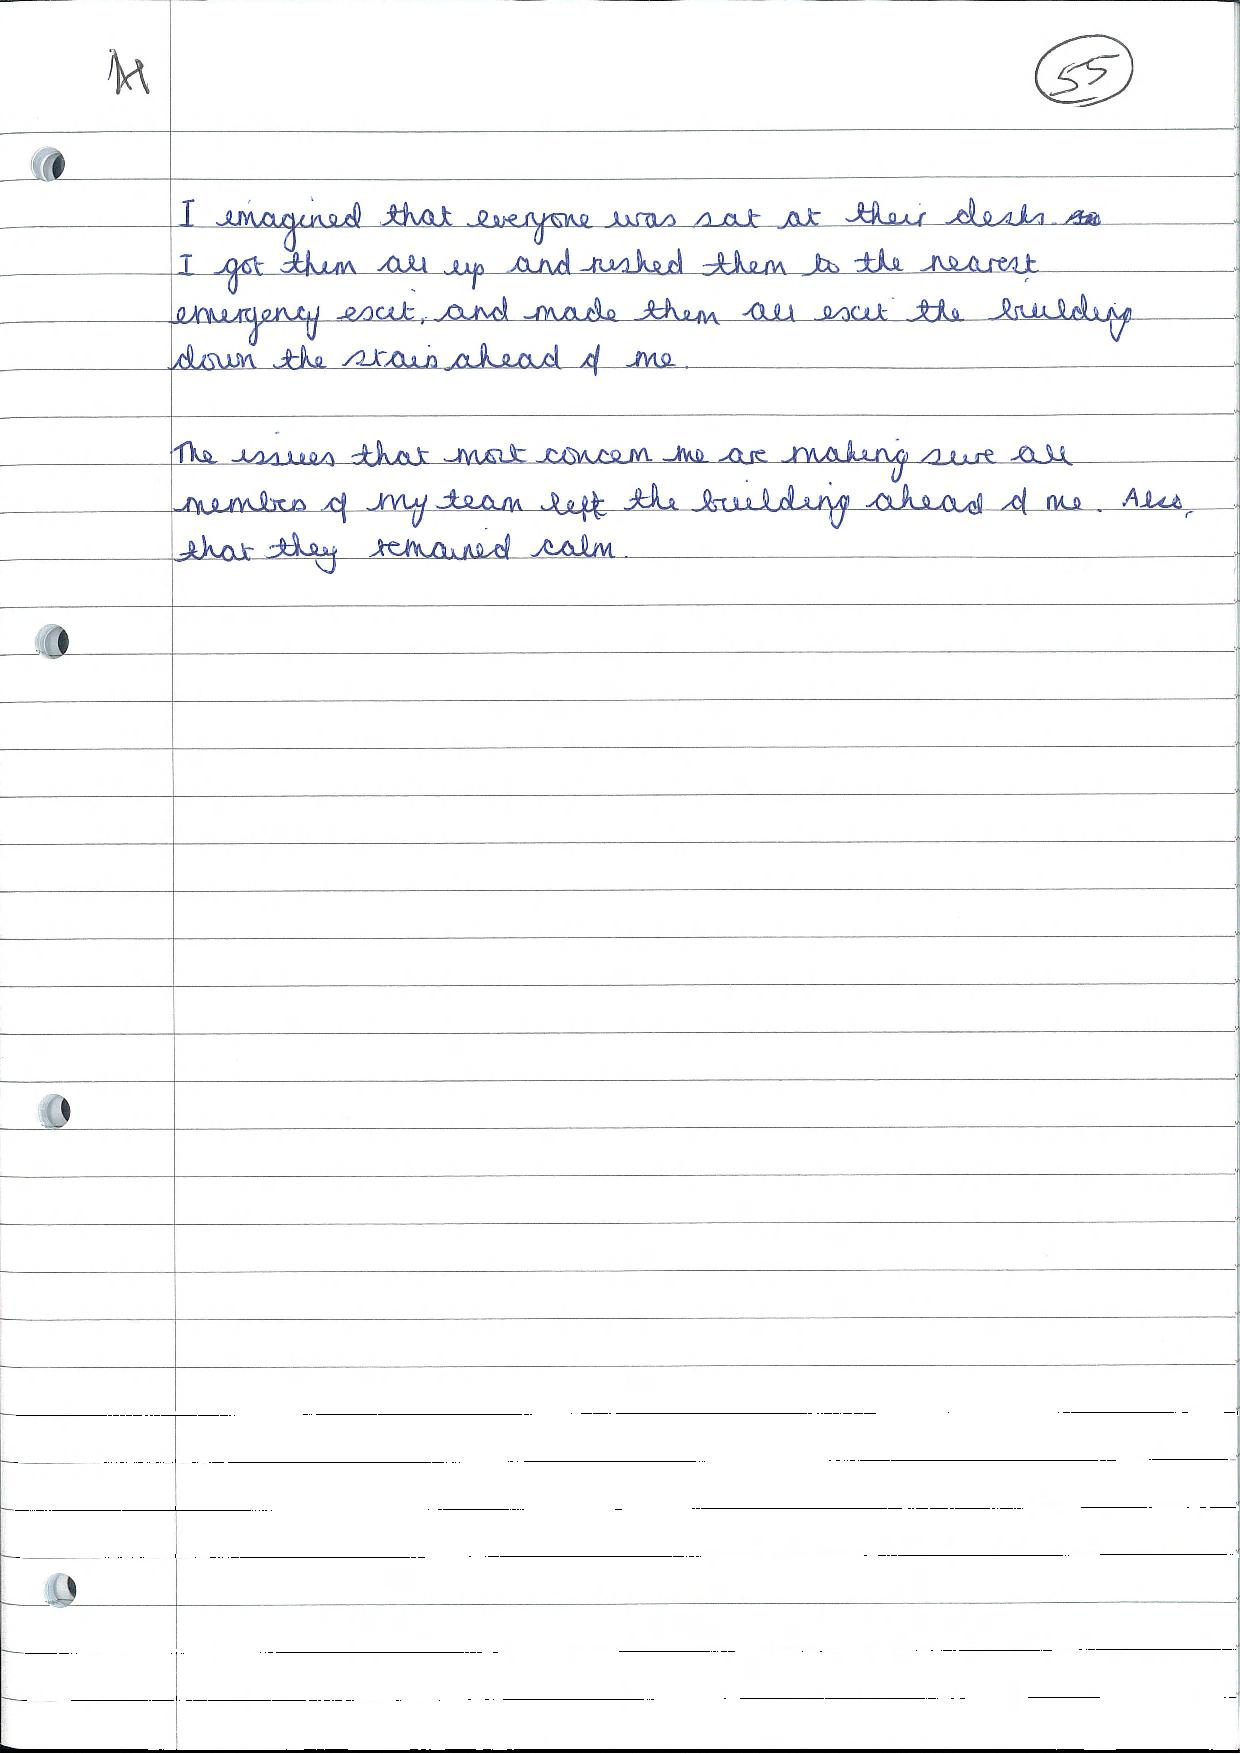 55
I imagined that everyone was sat at their desks
I got them all up and rushed them to the nearest
emergency exit, and made them all exit the building
down the stairs ahead of me.
The issues that most concern me are making sure all
members of my team left the building ahead of me. Also,
that they remained calm.